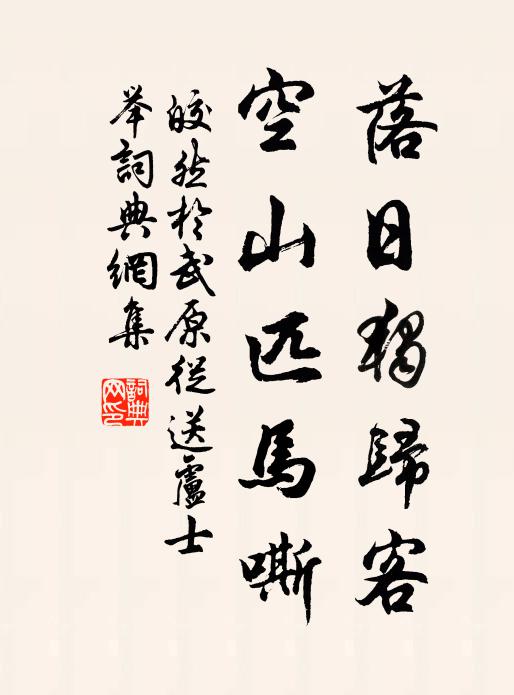 落日獨歸客
空山匹馬嘶
皎然於武原從送盧士
舉詞典網集
詞典網印